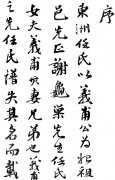 序
東洲任氏以義甫公為始祖
邑先正謝龜巢先生任氏
女夫義甫公妻兄弟也義甫
之先任氏譜失其名而載